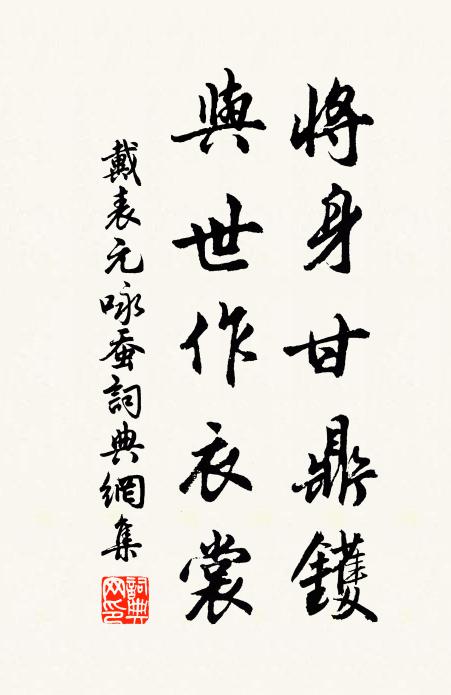 將身甘鼎鑊
與世作衣裳
戴表元咏蚕詞典網集
詞典